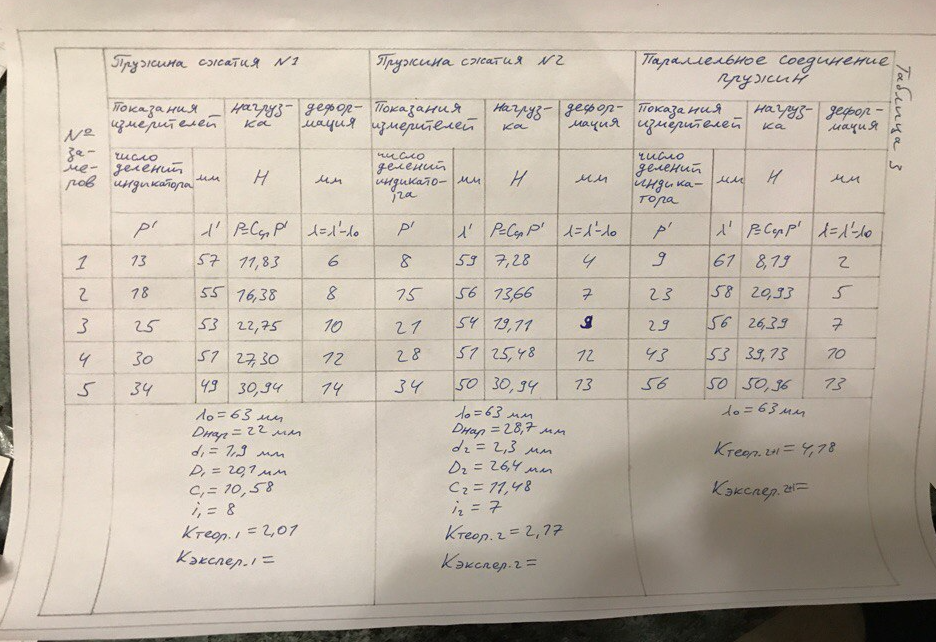 Таблица 3
Пружина сжатия N1 Пружина сжатия N2 Параллельное соединение
пружин
№ за-ме-ров Показания измерителей нагруз-ка дефор-мация Показания измерителей нагруз-ка дефор-мация Показания измерителей нагруз-ка дефор-мация
число делений индикатора мм Н мм число делений индикато-ра мм Н мм число делений индика-тора мм Н мм
P' λ' P=Cср P' λ=λ'-λ0 P' λ' P=Cср P' λ=λ'-λ0 P' λ' P=Cср P' λ=λ'-λ0
1 13 57 11,83 6 8 59 7,28 4 9 61 8,19 2
2 18 55 16,38 8 15 56 13,66 7 23 58 20,93 5
3 25 53 22,75 10 21 54 19,11 9 29 56 26,39 7
4 30 51 27,30 12 28 51 25,48 12 43 53 39,13 10
5 34 49 30,94 14 34 50 30,94 13 56 50 50,96 13
λ0=63 мм
Dнар=22 мм
d1=1,9 мм
D1=20,1 мм
C1=10,58
i1=8
Kтеор.1=2,01
Kэкспер.1=
λ0=63 мм
Dнар=28,7 мм
d2=2,3 мм
D2=26,4 мм
C2=11,48
i2=7
Kтеор.2=2,17
Kэкспер.2=
λ0=63 мм
Kтеор.2+1=4,18
Kэкспер.2+1=